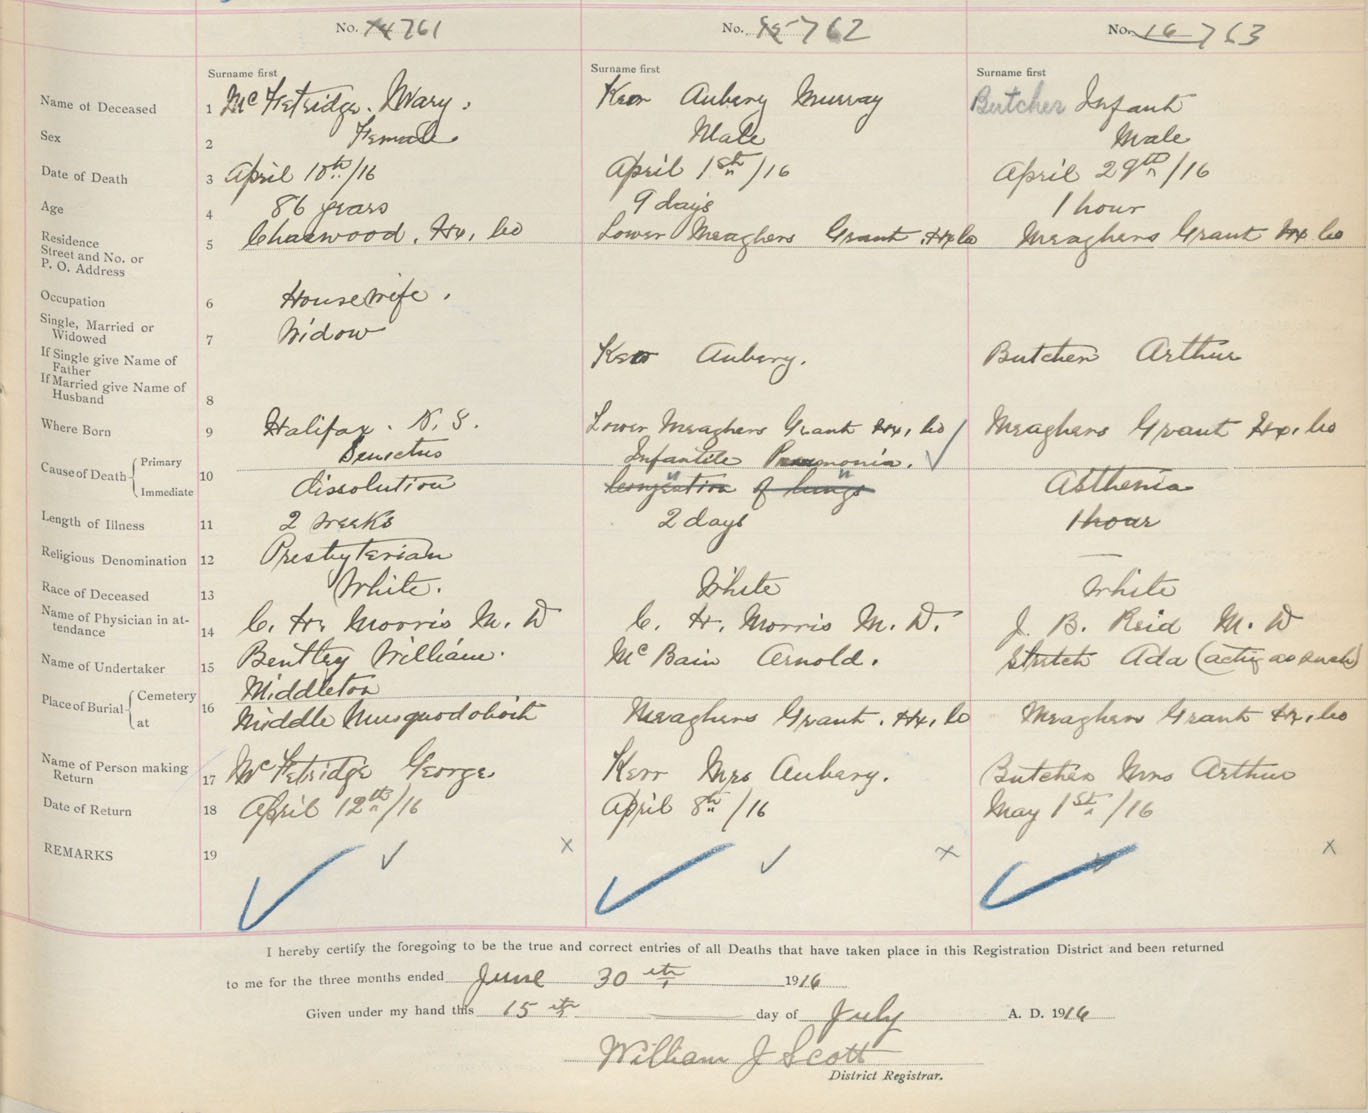 No. 14 761 No. 15 762 No. 16 763
Surname first Surname first Surname first
Name of Deceased 1 McFetridge. Mary. Kerr Aubery Murray Butcher Infant
Sex 2 Female Male Male
Date of Death 3 April 10th/16 April 1st/16 April 29th/16
Age 4 86 years 9 days 1 hour
Residence
Street and No. or
P. O. Address 5 Chaswood, Hx, Co Lower Meaghers Grant Hx Co Meaghers Grant Hx Co
Occupation 6 Housewife.
Single, Married or
Widowed 7 Widow
If Single give Name of
Father Kerr Aubery. Butcher Arthur
If Married give Name of
Husband 8
Where Born 9 Halifax. N. S. Lower Meaghers Grant Hx, Co Meaghers Grant Hx, Co
Cause of Death Primary Senectus Infantile Pneumonia.
Immediate 10 dissolution Congestion of lungs Asthenia
Length of Illness 11 2 weeks 2 days 1 hour
Religious Denomination 12 Presbyterian —
Race of Deceased 13 White. White White
Name of Physician in at-
tendance 14 C. H. Morris M. D C. H. Morris M. D. J. B. Reid M. D
Name of Undertaker 15 Bentley William. McBain Arnold. Stretch Ada (acting as such)
Place of Burial Cemetery Middleton
at 16 Middle Musquodoboit Meaghers Grant. Hx, Co Meaghers Grant Hx, Co
Name of Person making
Return 17 McFetridge George Kerr Mrs Aubery. Butcher Mrs Arthur
Date of Return 18 April 12th/16 April 8th/16 May 1st/16
REMARKS 19
I hereby certify the foregoing to be the true and correct entries of all Deaths that have taken place in this Registration District and been returned
to me for the three months ended June 30th 1916
Given under my hand this 15th day of July A. D. 1916
William J Scott
District Registrar.